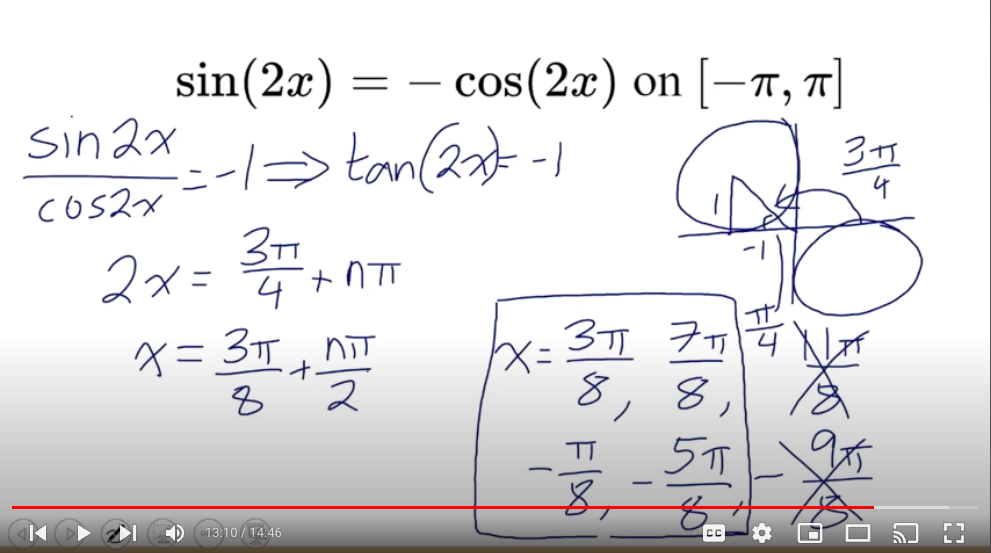 sin(2x) = − cos(2x) on [−π, π]
sin2x/cos2x = -1 ⇒ tan(2x) = -1
2x = 3π/4 + nπ
x = 3π/8 + nπ/2
3π/4
1
-1
π/4
x = 3π/8, 7π/8, 11π/8
-π/8, -5π/8, -9π/8
13:10 / 14:46
CC